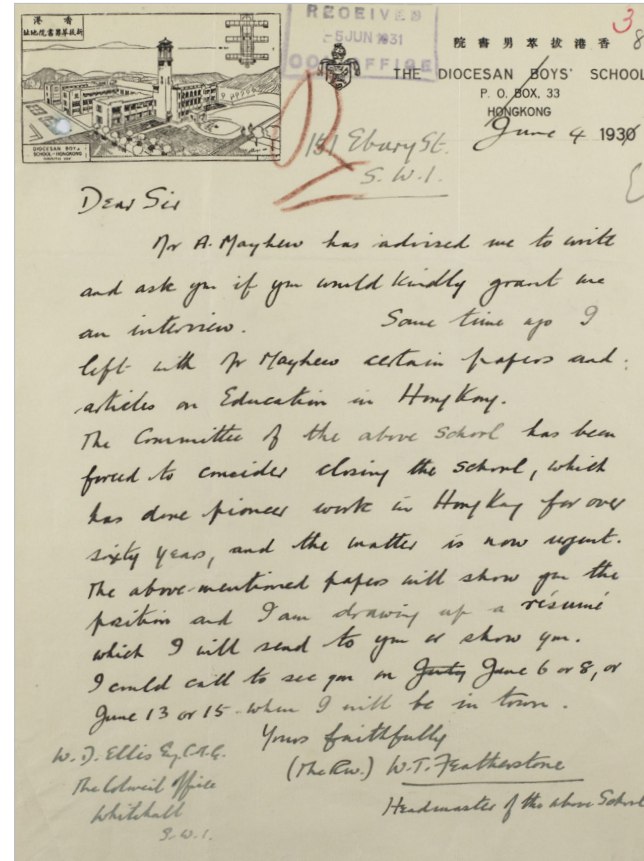 香港
新拔萃男書院地址
DIOCESAN BOYS
SCHOOL-HONGKONG
RECEIVED
-5 JUN 1931
COL. OFFICE
3
8
院書男萃拔港香
THE DIOCESAN BOYS' SCHOOL
P. O. BOX, 33
HONGKONG
June 4 1930
151 Ebury St.
S.W.1.
Dear Sir
Mr A. Mayhew has advised me to write
and ask you if you would kindly grant me
an interview. Some time ago I
left with Mr Mayhew certain papers and
articles on Education in HongKong.
The Committee of the above School has been
forced to consider closing the School, which
has done pioneer work in HongKong for over
sixty years, and the matter is now urgent.
The above-mentioned papers will show you the
position and I am drawing up a résumé
which I will send to you or show you.
I could call to see you on July June 6 or 8, or
June 13 or 15 - when I will be in town.
Yours faithfully
(The Rev.) W.T. Featherstone
Headmaster of the above School
W. D. Ellis Esq C.M.G.
The Colonial Office
Whitehall
S.W.1.